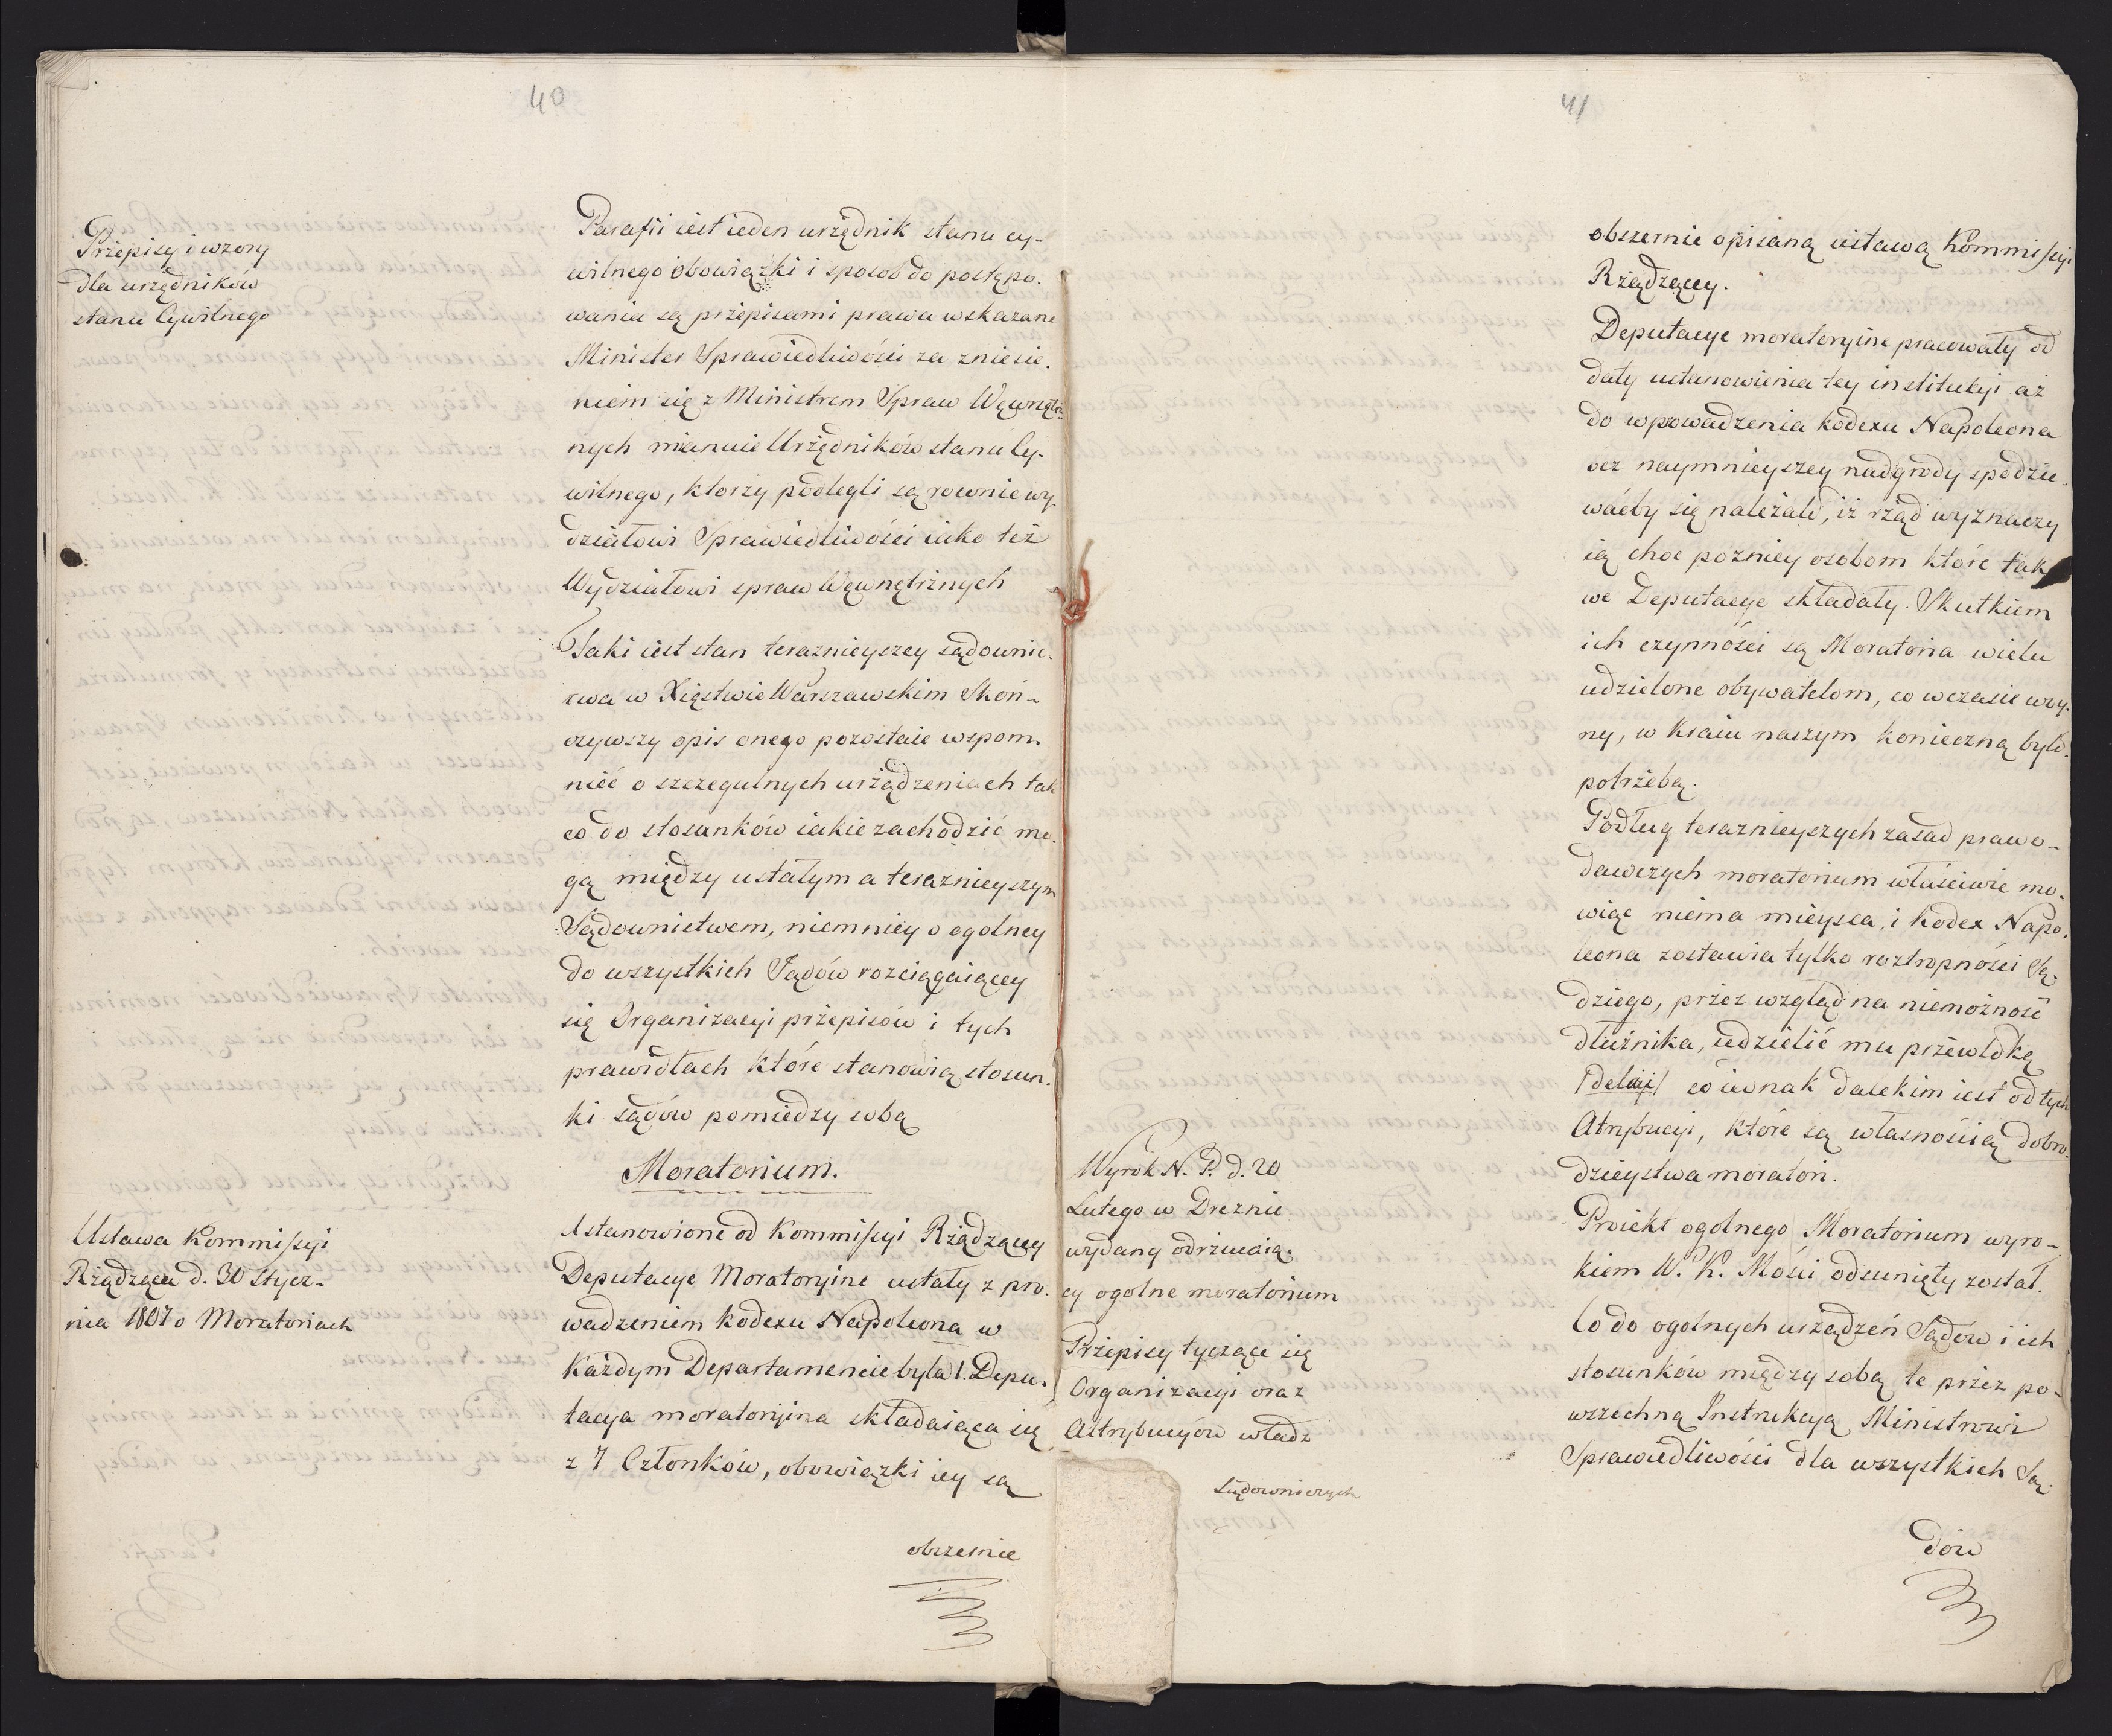 40
Przepisy i wzory
dla urzędników
stanu Cywilnego
Parafii iest ieden urzędnik stanu cy-
wilnego obowiązki i sposob do postępo-
wania są przepisami prawa wskazane
Minister Sprawiedliwości za zniesie-
niem się z Ministrem Spraw Wewnętrz-
nych mianuie Urzędników stanu Cy-
wilnego, ktorzy podlegli są rownie wy-
działowi Sprawiedliwości iako też
Wydziałowi spraw Wewnętrznych
Jaki iest stan teraznieyszey sądownic-
twa w Xięstwie Warszawskim Skoń-
czywszy opis onego pozostaie wspom-
nieć o szczegulnych urządzeniach tak
co do stosunków iakie zachodzić mo-
gą między ustałym a teraznieyszym
Sądownictwem, niemniey o ogolney
do wszystkich Sądów rozciągaiącey
się Organizacyi przepisów i tych
prawidłach które stanowią stosun-
ki sądów pomiedzy sobą
Moratorium.
Ustawa Kommissyi
Rządzącey d. 30 Stycz-
nia 1807 o Moratoriach
Ustanowione od Kommissyi Rządzącey
Deputacye Moratoryine ustały z pro-
wadzeniem kodexu Napoleona w
Każdym Departamencie była 1. Depu-
tacya moratoryina składaiąca się
z 7 Członków, obowiązki iey są
obszernie
41
obszernie opisaną ustawą Kommissyi
Rządzącey.
Deputacye moratoryine pracowały od
daty ustanowienia tey instytucyi aż
do wprowadzenia kodexu Napoleona
bez naymnieyszey nadgrody spodzie-
waćby się należało, iż rząd wyznaczy
ią choc pozniey osobom które tako-
we Deputacye składały. Skutkiem
ich czynności są Moratoria wielu
udzielone obywatelom, co w czasie woy-
ny, w kraiu naszym konieczną było
potrzebą.
Podług teraznieyszych zasad prawo-
dawczych moratorium właściwie mo-
wiąc niema mieysca, i kodex Napo-
leona zostawia tylko roztropności Sę-
dziego, przez wzgląd na niemożność
dłużnika, udzielić mu przewłokę
/delaij/ co iednak dalekim iest od tych
Atrybucyi, które są własnością dobro-
dzieystwa moratori.
Wyrok N. P. d. 20
Lutego w Dreznie
wydany odrzucaią-
cy ogolne moratorium
Proiekt ogolnego Moratorium wyro-
kiem W. K. Mości odsunięty został.
Przepisy tyczące się
Organizacyi oraz
Attrybucyów władz
Sądowniczych
Co do ogolnych urządzeń Sądów i ich
stosunków między sobą te przez po-
wszechną Instrukcyą Ministrowi
Sprawiedliwości dla wszystkich Są-
dów